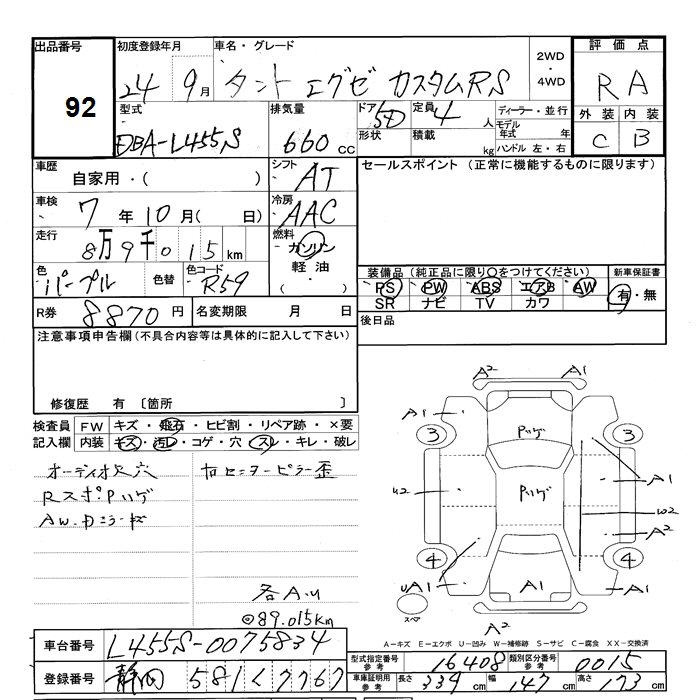 出品番号
92
初度登録年月
24 9月
車名・グレード
タント エグゼ カスタムRS
2WD
・
4WD
評価点
RA
外装 内装
C B
型式
DBA-L455S
排気量
660 cc
ドア
5D
形状
定員
4 人
積載
kg
ディーラー・並行
モデル年式 年
ハンドル 左・右
車歴
自家用・( )
シフト
AT
セールスポイント (正常に機能するものに限ります)
車検
7年10月( 日)
冷房
AAC
走行
8万9千015km
燃料
ガソリン
軽油
・( )
色
パープル
色替
色コード
R59
装備品(純正品に限り○をつけてください)
PS PW ABS エアB AW
SR ナビ TV カワ
新車保証書
有・無
R券
8870円
名変期限 月 日
後日品
注意事項申告欄(不具合内容等は具体的に記入して下さい)
修復歴 有 〔箇所 〕
検査員記入欄
FW キズ・飛石・ヒビ割・リペア跡・×要
内装 キズ・汚レ・コゲ・穴・スレ・キレ・破レ
オーディオ欠穴
RスポPハゲ
各AU
◎89.015km
A2 A1
A1
3 3
Pハゲ
Pハゲ
A1
W2
A2
4 4
UA1
A1
A1
A2
スペア
A=キズ E=エクボ U=凹み W=補修跡 S=サビ C=腐食 XX=交換済
車台番号
L455S-0075834
登録番号
静岡 581く7767
型式指定番号
参考
16408
類別区分番号
参考
0015
車庫証明用
参考
長さ 339cm
幅 147cm
高さ 173cm